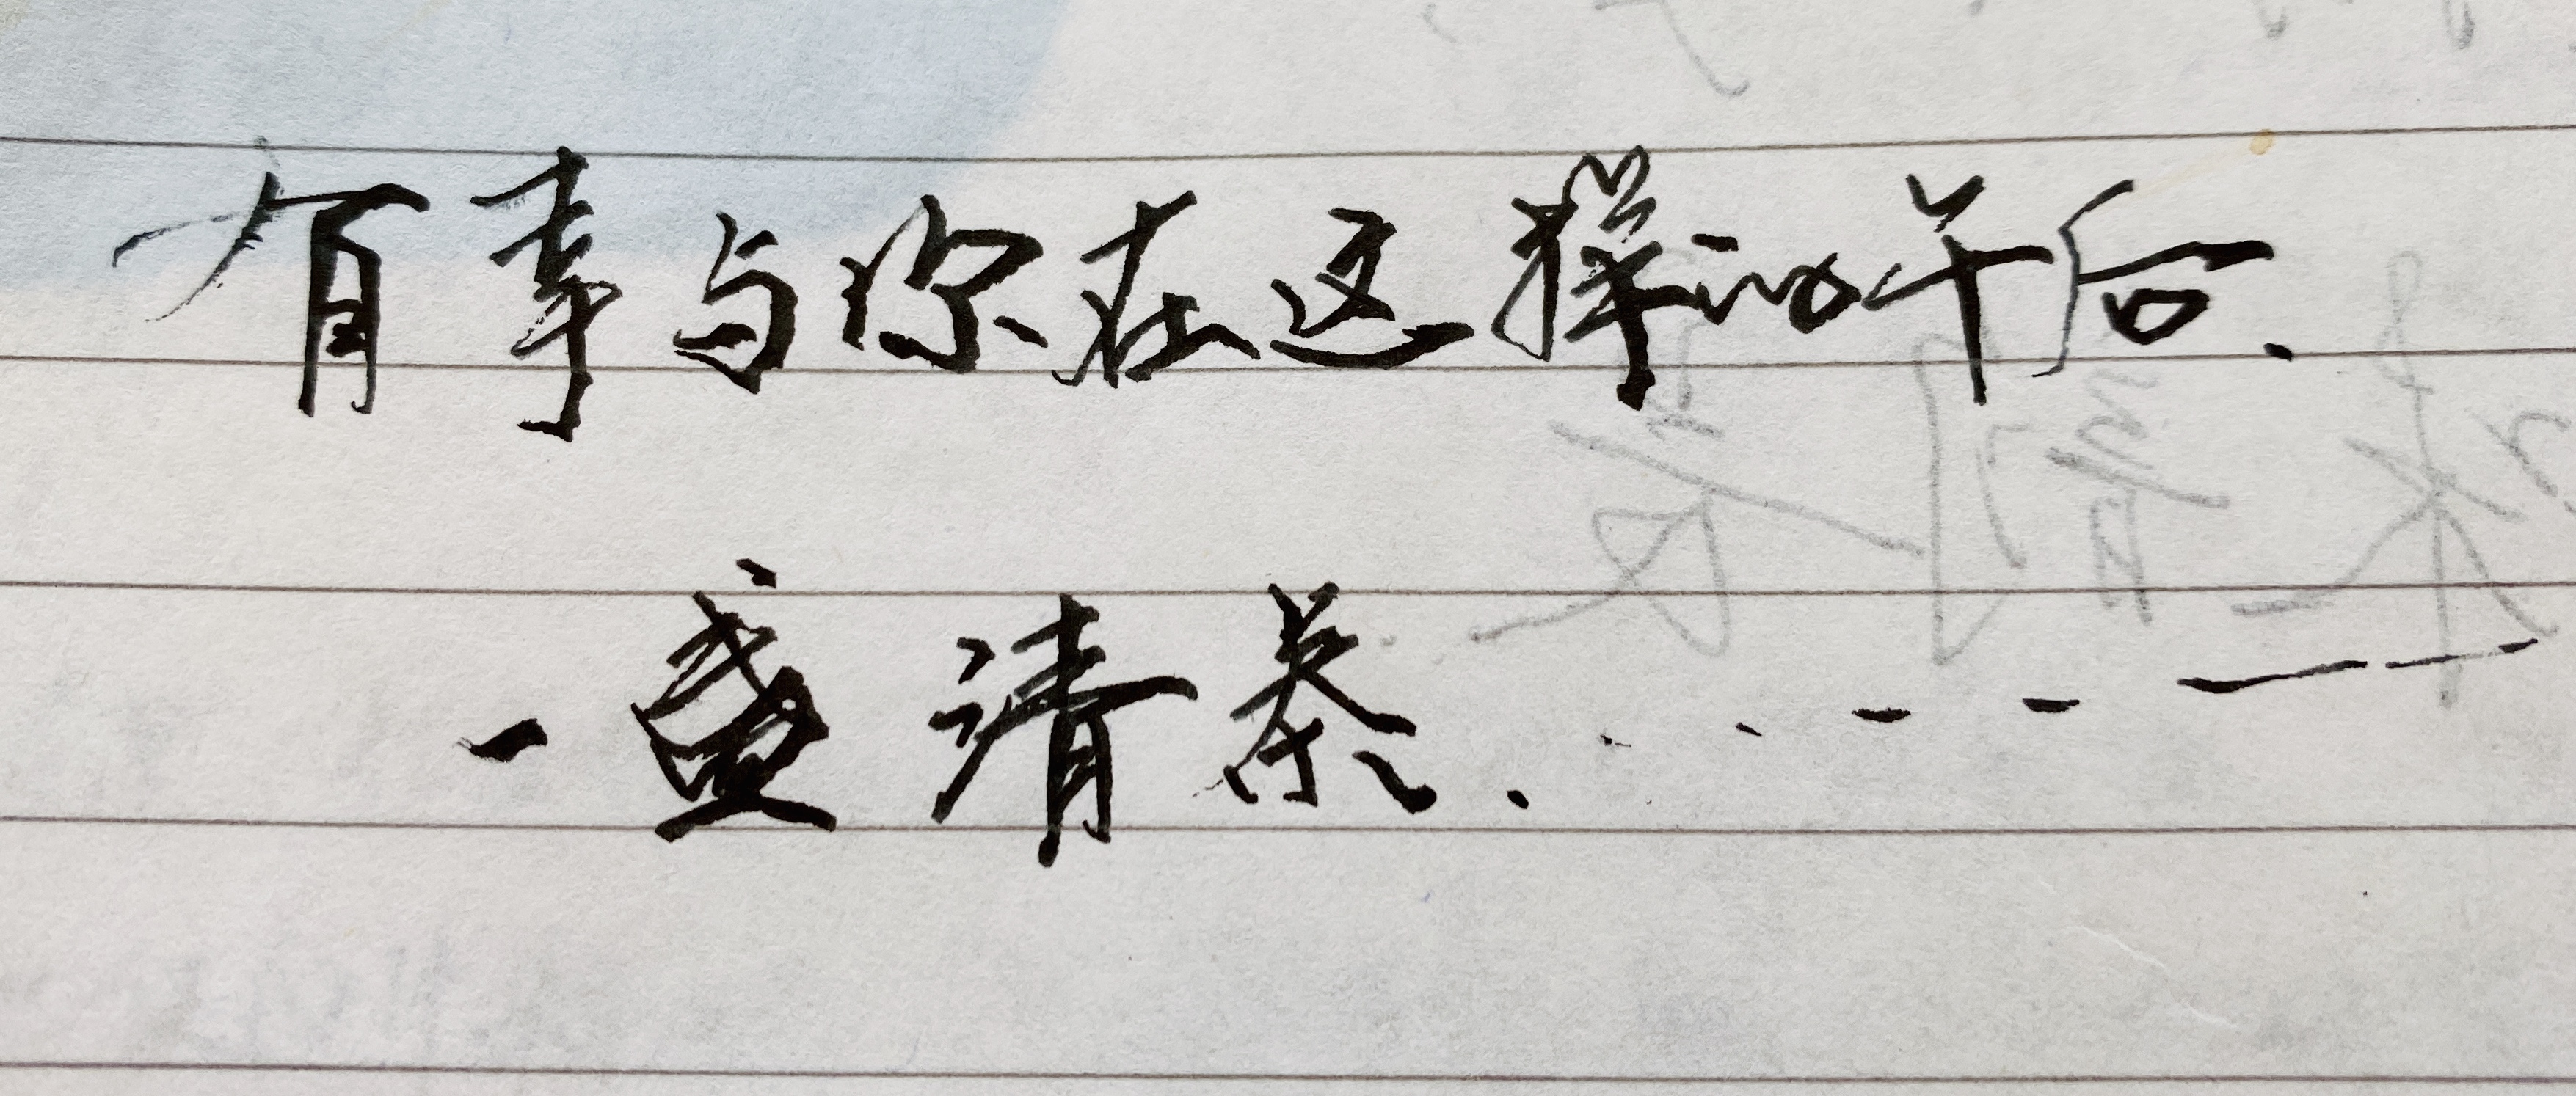 有幸与你在这样的午后.
一盏清茶. . . - - — —